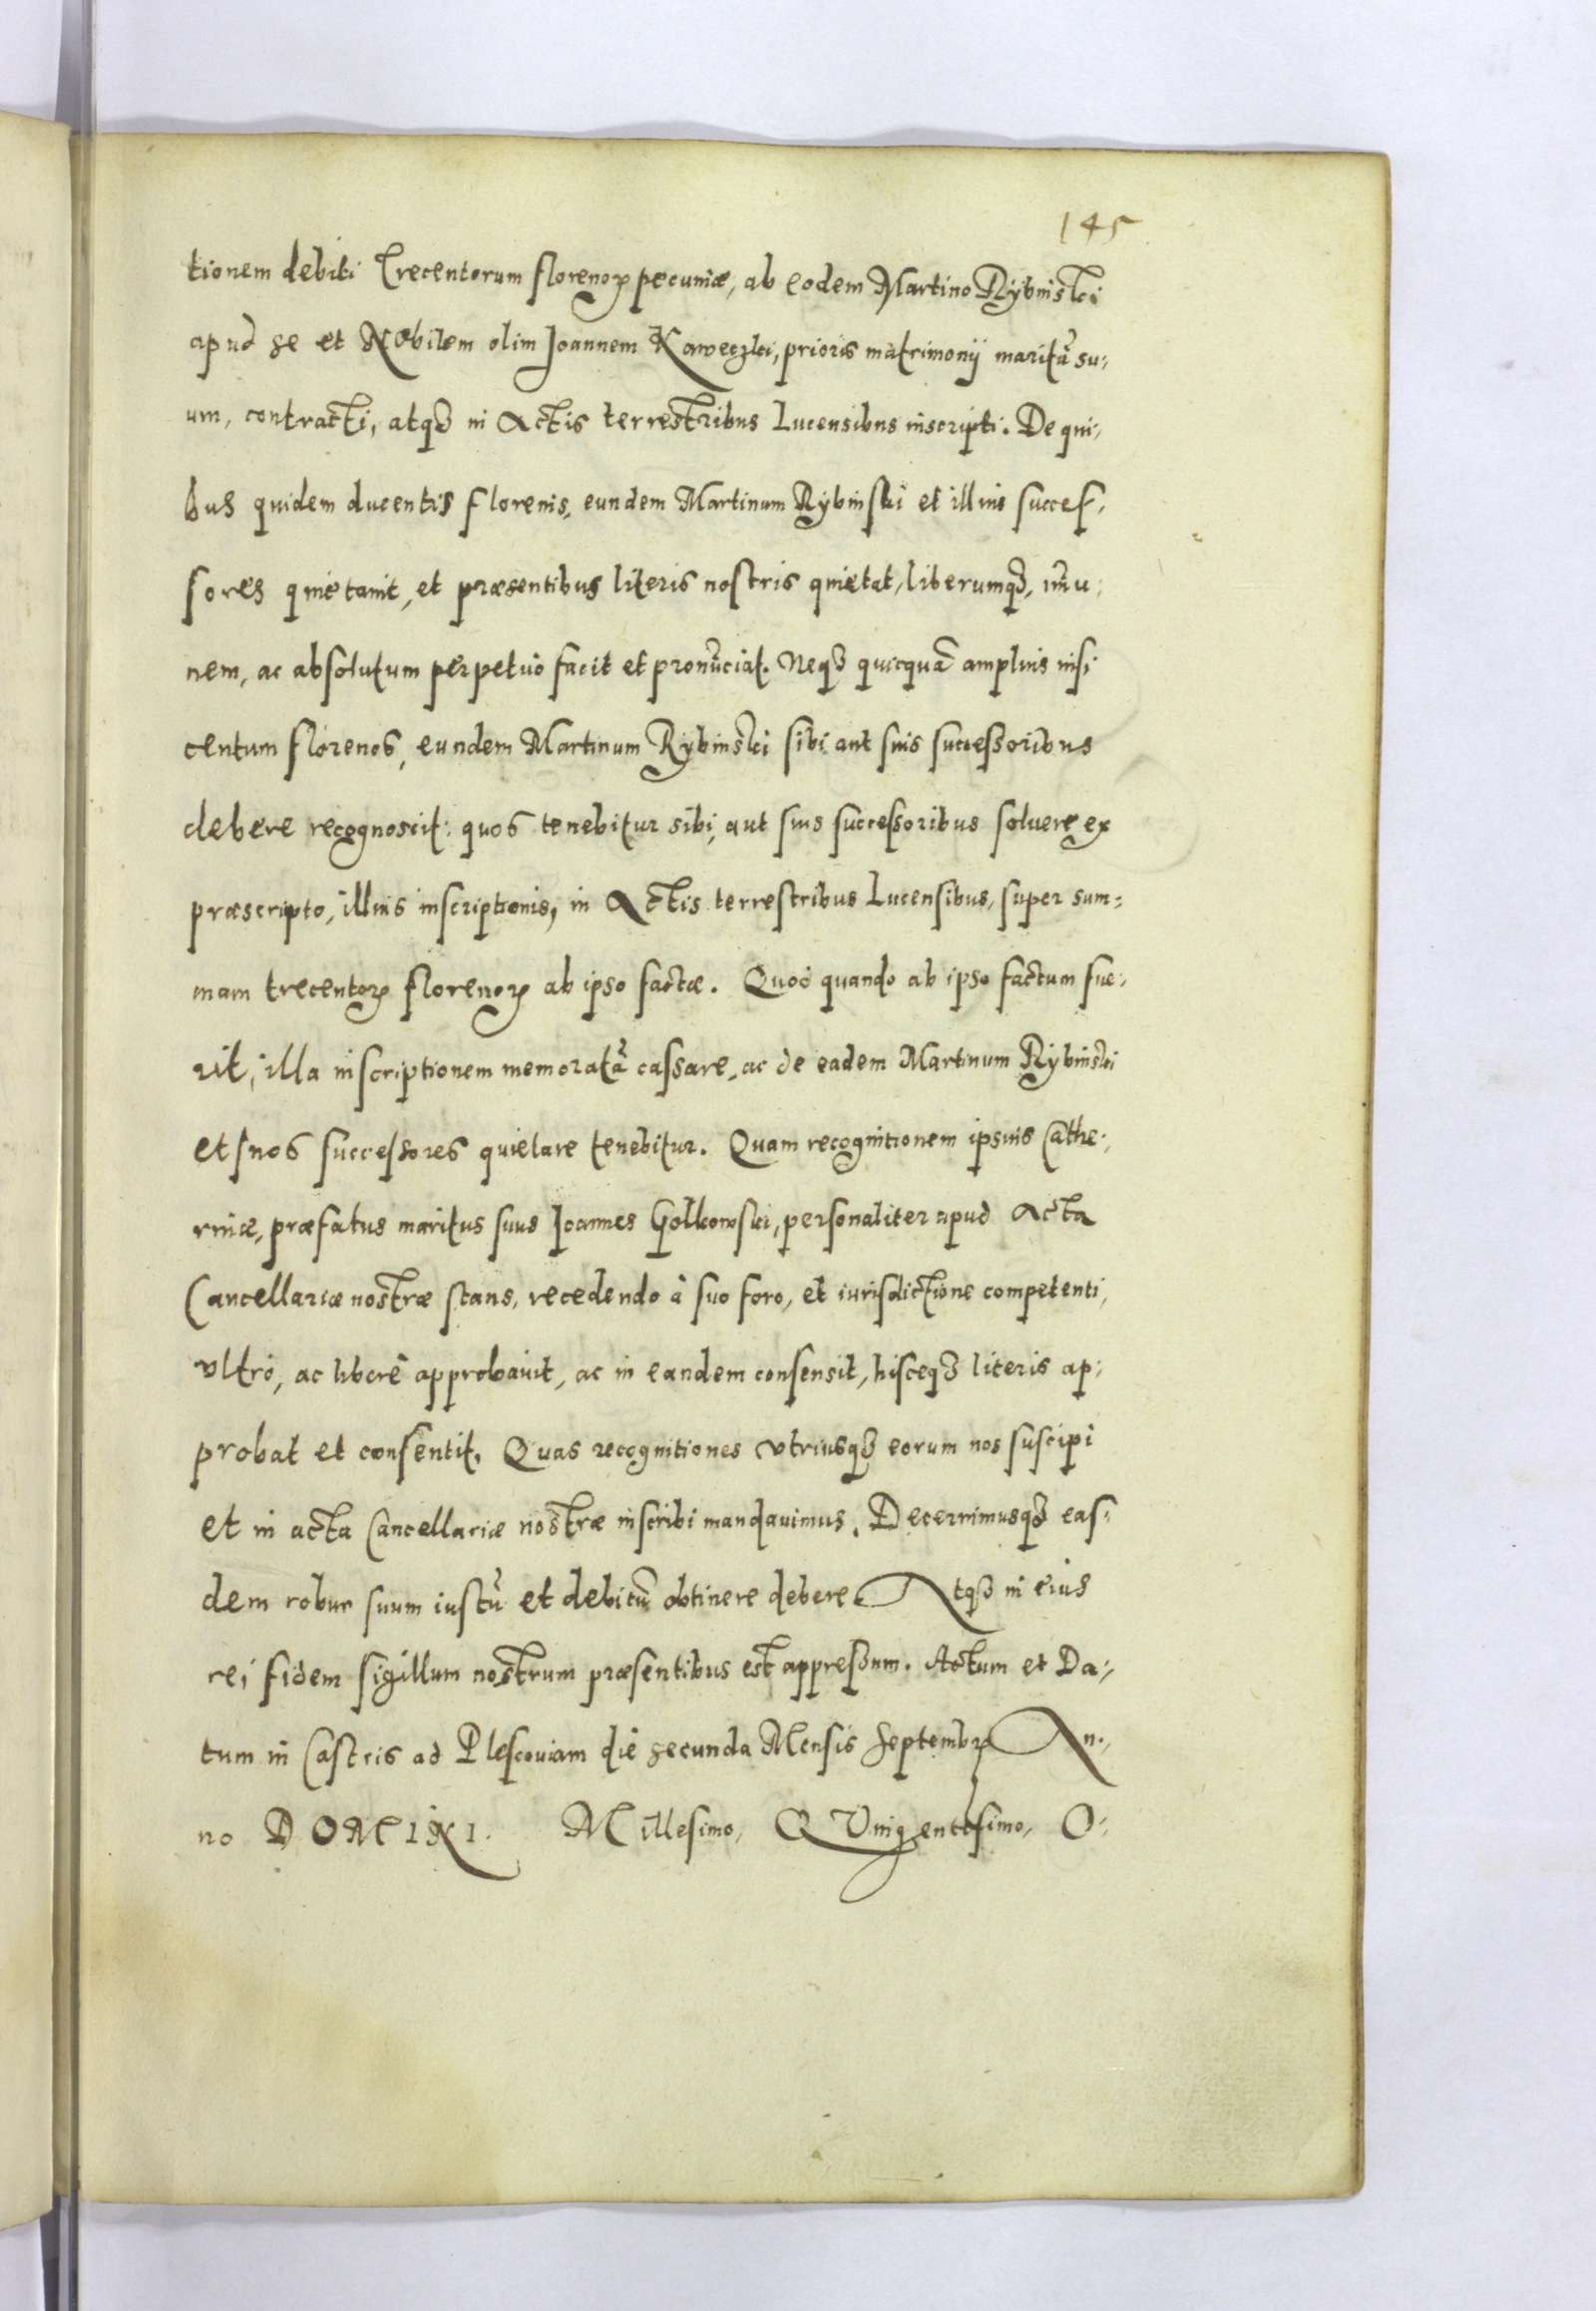 145
tionem debiti Trecentorum florenoꝝ pecuniæ, ab eodem Martino Rybinski
apud se et Nobilem olim Joannem Kaweczki, prioris matrimonij maritũ su-
um, contracti, atqꝫ in Actis terrestribus Lucensibus inscripti. De qui-
bus quidem ducentis florenis, eundem Martinum Rybinski et illius succes-
sores quietauit, et præsentibus literis nostris quietat, liberumqꝫ, im̃u-
nem, ac absolutum perpetuò facit et pronũciat. Neqꝫ quicquã amplius nisi
centum florenos, eundem Martinum Rybinski sibi aut suis successoribus
debere recognoscit: quos tenebitur sibi, aut suis successoribus soluere ex
præscripto, illius inscriptionis, in Actis terrestribus Lucensibus, super sum-
mam trecentoꝝ florenoꝝ ab ipso factæ. Quod quando ab ipso factum fue-
rit, illa inscriptionem memoratã cassare, ac de eadem Martinum Rybinski
et suos successores quietare tenebitur. Quam recognitionem ipsius Cathe-
rinæ, præfatus maritus suus Joannes Golkowski, personaliter apud Acta
Cancellariæ nostræ stans, recedendo à suo foro, et iurisdictione competenti,
vltrò, ac liberè approbauit, ac in eandem consensit, hisceqꝫ literis ap-
probat et consentit. Quas recognitiones vtriusqꝫ eorum nos suscipi
et in acta Cancellariæ nostræ inscribi mandauimus. Decernimusqꝫ eas-
dem robur suum iustũ et debitũ obtinere debere. Atqꝫ in eius
rei fidem sigillum nostrum præsentibus est appressum. Actum et Da-
tum in Castris ad Plescouiam die secunda Mensis Septembꝝ An-
no DOMINI. Millesimo, QVingentesimo, O-